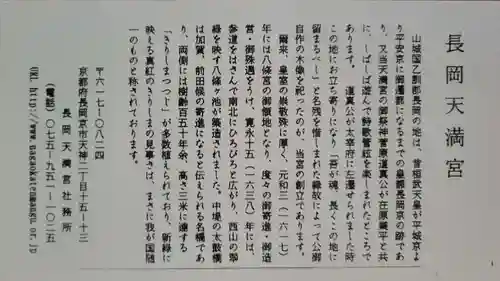 長岡天満宮
山城国乙訓郡長岡の地は、昔桓武天皇が平城京よ
り平安京に御遷都になるまでの皇都長岡京の跡であ
り、又当天満宮の御祭神菅原道真公が在原業平と共
に、しばしば遊んで詩歌管絃を楽しまれたところで
あります。道真公が太宰府に左遷せられました時
この地にお立ち寄りになり「吾が魂、長くこの地に
留まるべし」と名残を惜しまれた縁故によって公御
自作の木像を祀ったのが、当宮の創立であります。
爾来、皇室の崇敬殊に厚く、元和三(一六一七)
年には八條宮の御領地となり、度々の御寄進・御造
営・御殊遇をうけ、寛永十五(一六三八)年には、
参道をはさんで南北にひろびろと広がり、西山の翠
緑を映す八條ヶ池が築造されました。中堤の太鼓橋
は加賀、前田候の寄進になると伝えられる名橋であ
り、両側には樹齢百五十年余、高さ三米に達する
「きりしまつつじ」が多数植えられており、新緑に
映える真紅のきりしまの見事さは、まさに我が国随
一のものと称されております。
〒六一七-〇八二四
京都府長岡京市天神二丁目十五-十三
長岡天満宮社務所
(電話)〇七五-九五一-一〇二五
URL http://www.nagaokatenmangu.or.jp